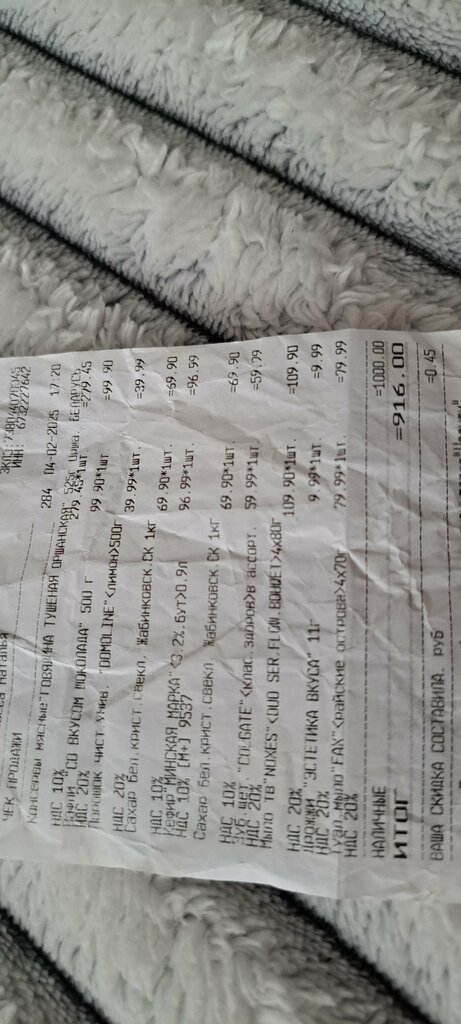 ЧЕК ПРОДАЖИ
284 04-02-2025 17:20
Консервы мясные"ГОВЯДИНА ТУШЕНАЯ ОРШАНСКАЯ" 525г
279.45*1шт. =279.45
НДС 10%
СО ВКУСОМ ШОКОЛАДА" 500 г
99.90*1шт. =99.90
НДС 20%
Порошок чист.унив. "DOMOLINE"<лимон>500г
39.99*1шт. =39.99
НДС 20%
Сахар бел.крист.свекл. Жабинковск.СК 1кг
69.90*1шт. =69.90
НДС 10%
Кефир"МИНСКАЯ МАРКА"<3.2%.бут>0.9л
96.99*1шт. =96.99
НДС 10% [М+] 9537
Сахар бел.крист.свекл. Жабинковск.СК 1кг
69.90*1шт. =69.90
НДС 10%
Зуб.щет."COLGATE"<клас.здоров>в ассорт.
59.99*1шт. =59.99
НДС 20%
Мыло ТВ"NOXES"<DUO SER.FLOW.BOUQET>4x80г
109.90*1шт. =109.90
НДС 20%
Дрожжи "ЭСТЕТИКА ВКУСА" 11г
9.99*1шт. =9.99
НДС 20%
Туал.мыло"FAX"<райские острова>4x70г
79.99*1шт. =79.99
НДС 20%
НАЛИЧНЫЕ =1000.00
ИТОГ =916.00
ВАША СКИДКА СОСТАВИЛА, РУБ =0.45